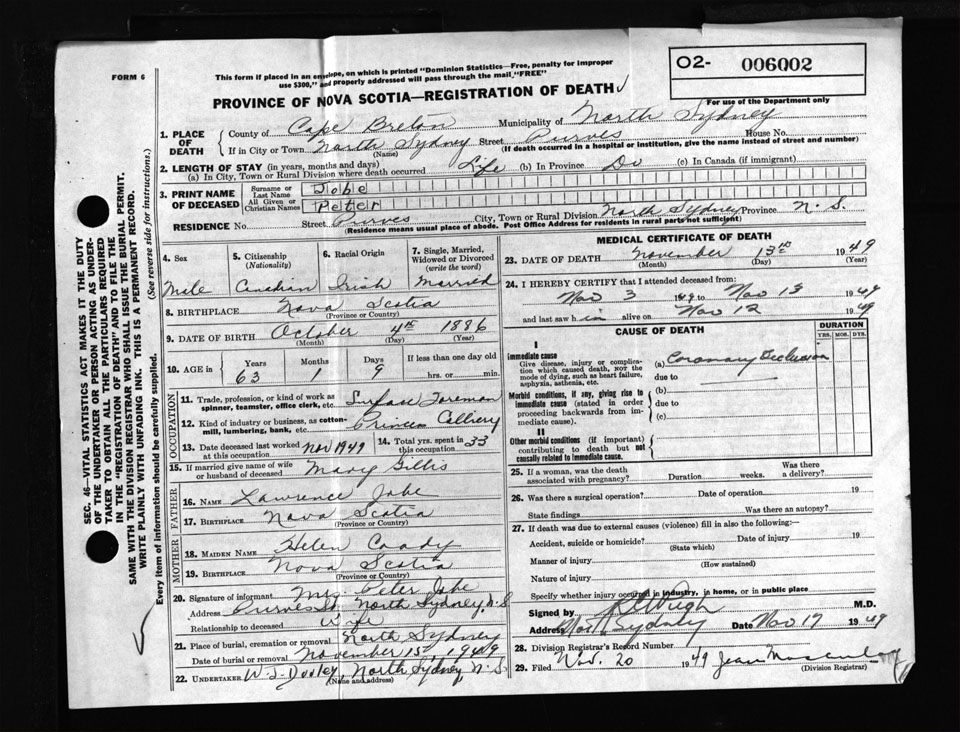 FORM 6
This form if placed in an envelope, on which is printed "Dominion Statistics—Free, penalty for improper
use $300," and properly addressed will pass through the mail "FREE"
O2- 006002
PROVINCE OF NOVA SCOTIA—REGISTRATION OF DEATH
For use of the Department only
1. PLACE OF DEATH
County of Cape Breton Municipality of North Sydney
If in City or Town North Sydney Street Purves House No.
(Name) (If death occurred in a hospital or institution, give the name instead of street and number)
2. LENGTH OF STAY (in years, months and days)
(a) In City, Town or Rural Division where death occurred Life (b) In Province Do (c) In Canada (if immigrant)
3. PRINT NAME OF DECEASED
Surname or Last Name Jobe
All Given or Christian Names Peter
RESIDENCE No. Street Purves City, Town or Rural Division North Sydney Province N.S.
(Residence means usual place of abode. Post Office Address for residents in rural parts not sufficient)
4. Sex Male
5. Citizenship (Nationality) Canadian
6. Racial Origin Irish
7. Single, Married, Widowed or Divorced (write the word) Married
8. BIRTHPLACE Nova Scotia
(Province or Country)
9. DATE OF BIRTH October 4th 1886
(Month) (Day) (Year)
10. AGE in Years 63 Months 1 Days 9 If less than one day old hrs. or min.
OCCUPATION
11. Trade, profession, or kind of work as spinner, teamster, office clerk, etc. Surfase Foreman
12. Kind of industry or business, as cotton-mill, lumbering, bank, etc. Princess Colliery
13. Date deceased last worked at this occupation Nov 1949
14. Total yrs. spent in this occupation 33
15. If married give name of wife or husband of deceased Mary Gillis
FATHER
16. NAME Lawrence Jobe
17. BIRTHPLACE Nova Scotia
(Province or Country)
MOTHER
18. MAIDEN NAME Helen Coady
19. BIRTHPLACE Nova Scotia
(Province or Country)
20. Signature of informant Mrs. Peter Jobe
Address Purves St. North Sydney N.S
Relationship to deceased Wife
21. Place of burial, cremation or removal North Sydney
Date of burial or removal November 15th 1949
22. UNDERTAKER W. J. Dooley, North Sydney N.S.
(Name and address)
MEDICAL CERTIFICATE OF DEATH
23. DATE OF DEATH November 13th 1949
(Month) (Day) (Year)
24. I HEREBY CERTIFY that I attended deceased from:
Nov 3 1949 to Nov 13 1949
and last saw him alive on Nov 12 1949
CAUSE OF DEATH
DURATION
YRS. MOS. DYS.
I
Immediate cause
Give disease, injury or complication which caused death, not the mode of dying, such as heart failure, asphyxia, asthenia, etc.
(a) Coronary Occlusion
due to
Morbid conditions, if any, giving rise to immediate cause (stated in order proceeding backwards from immediate cause).
(b)
due to
(c)
II
Other morbid conditions (if important) contributing to death but not causally related to immediate cause.
25. If a woman, was the death associated with pregnancy? Duration weeks. Was there a delivery?
26. Was there a surgical operation? Date of operation 19
State findings Was there an autopsy?
27. If death was due to external causes (violence) fill in also the following:—
Accident, suicide or homicide? Date of injury 19
(State which)
Manner of injury
(How sustained)
Nature of injury
Specify whether injury occurred in industry, in home, or in public place
Signed by M.D.
Address North Sydney Date Nov 17 1949
28. Division Registrar's Record Number
29. Filed Nov. 20 1949 Jean
(Division Registrar)
SEC. 46—VITAL STATISTICS ACT MAKES IT THE DUTY
OF THE UNDERTAKER OR PERSON ACTING AS UNDER-
TAKER TO OBTAIN ALL THE PARTICULARS REQUIRED
IN THE "REGISTRATION OF DEATH" AND TO FILE THE
SAME WITH THE DIVISION REGISTRAR WHO SHALL ISSUE THE BURIAL PERMIT.
WRITE PLAINLY WITH UNFADING INK. THIS IS A PERMANENT RECORD.
Every item of information should be carefully supplied. (See reverse side for instructions.)